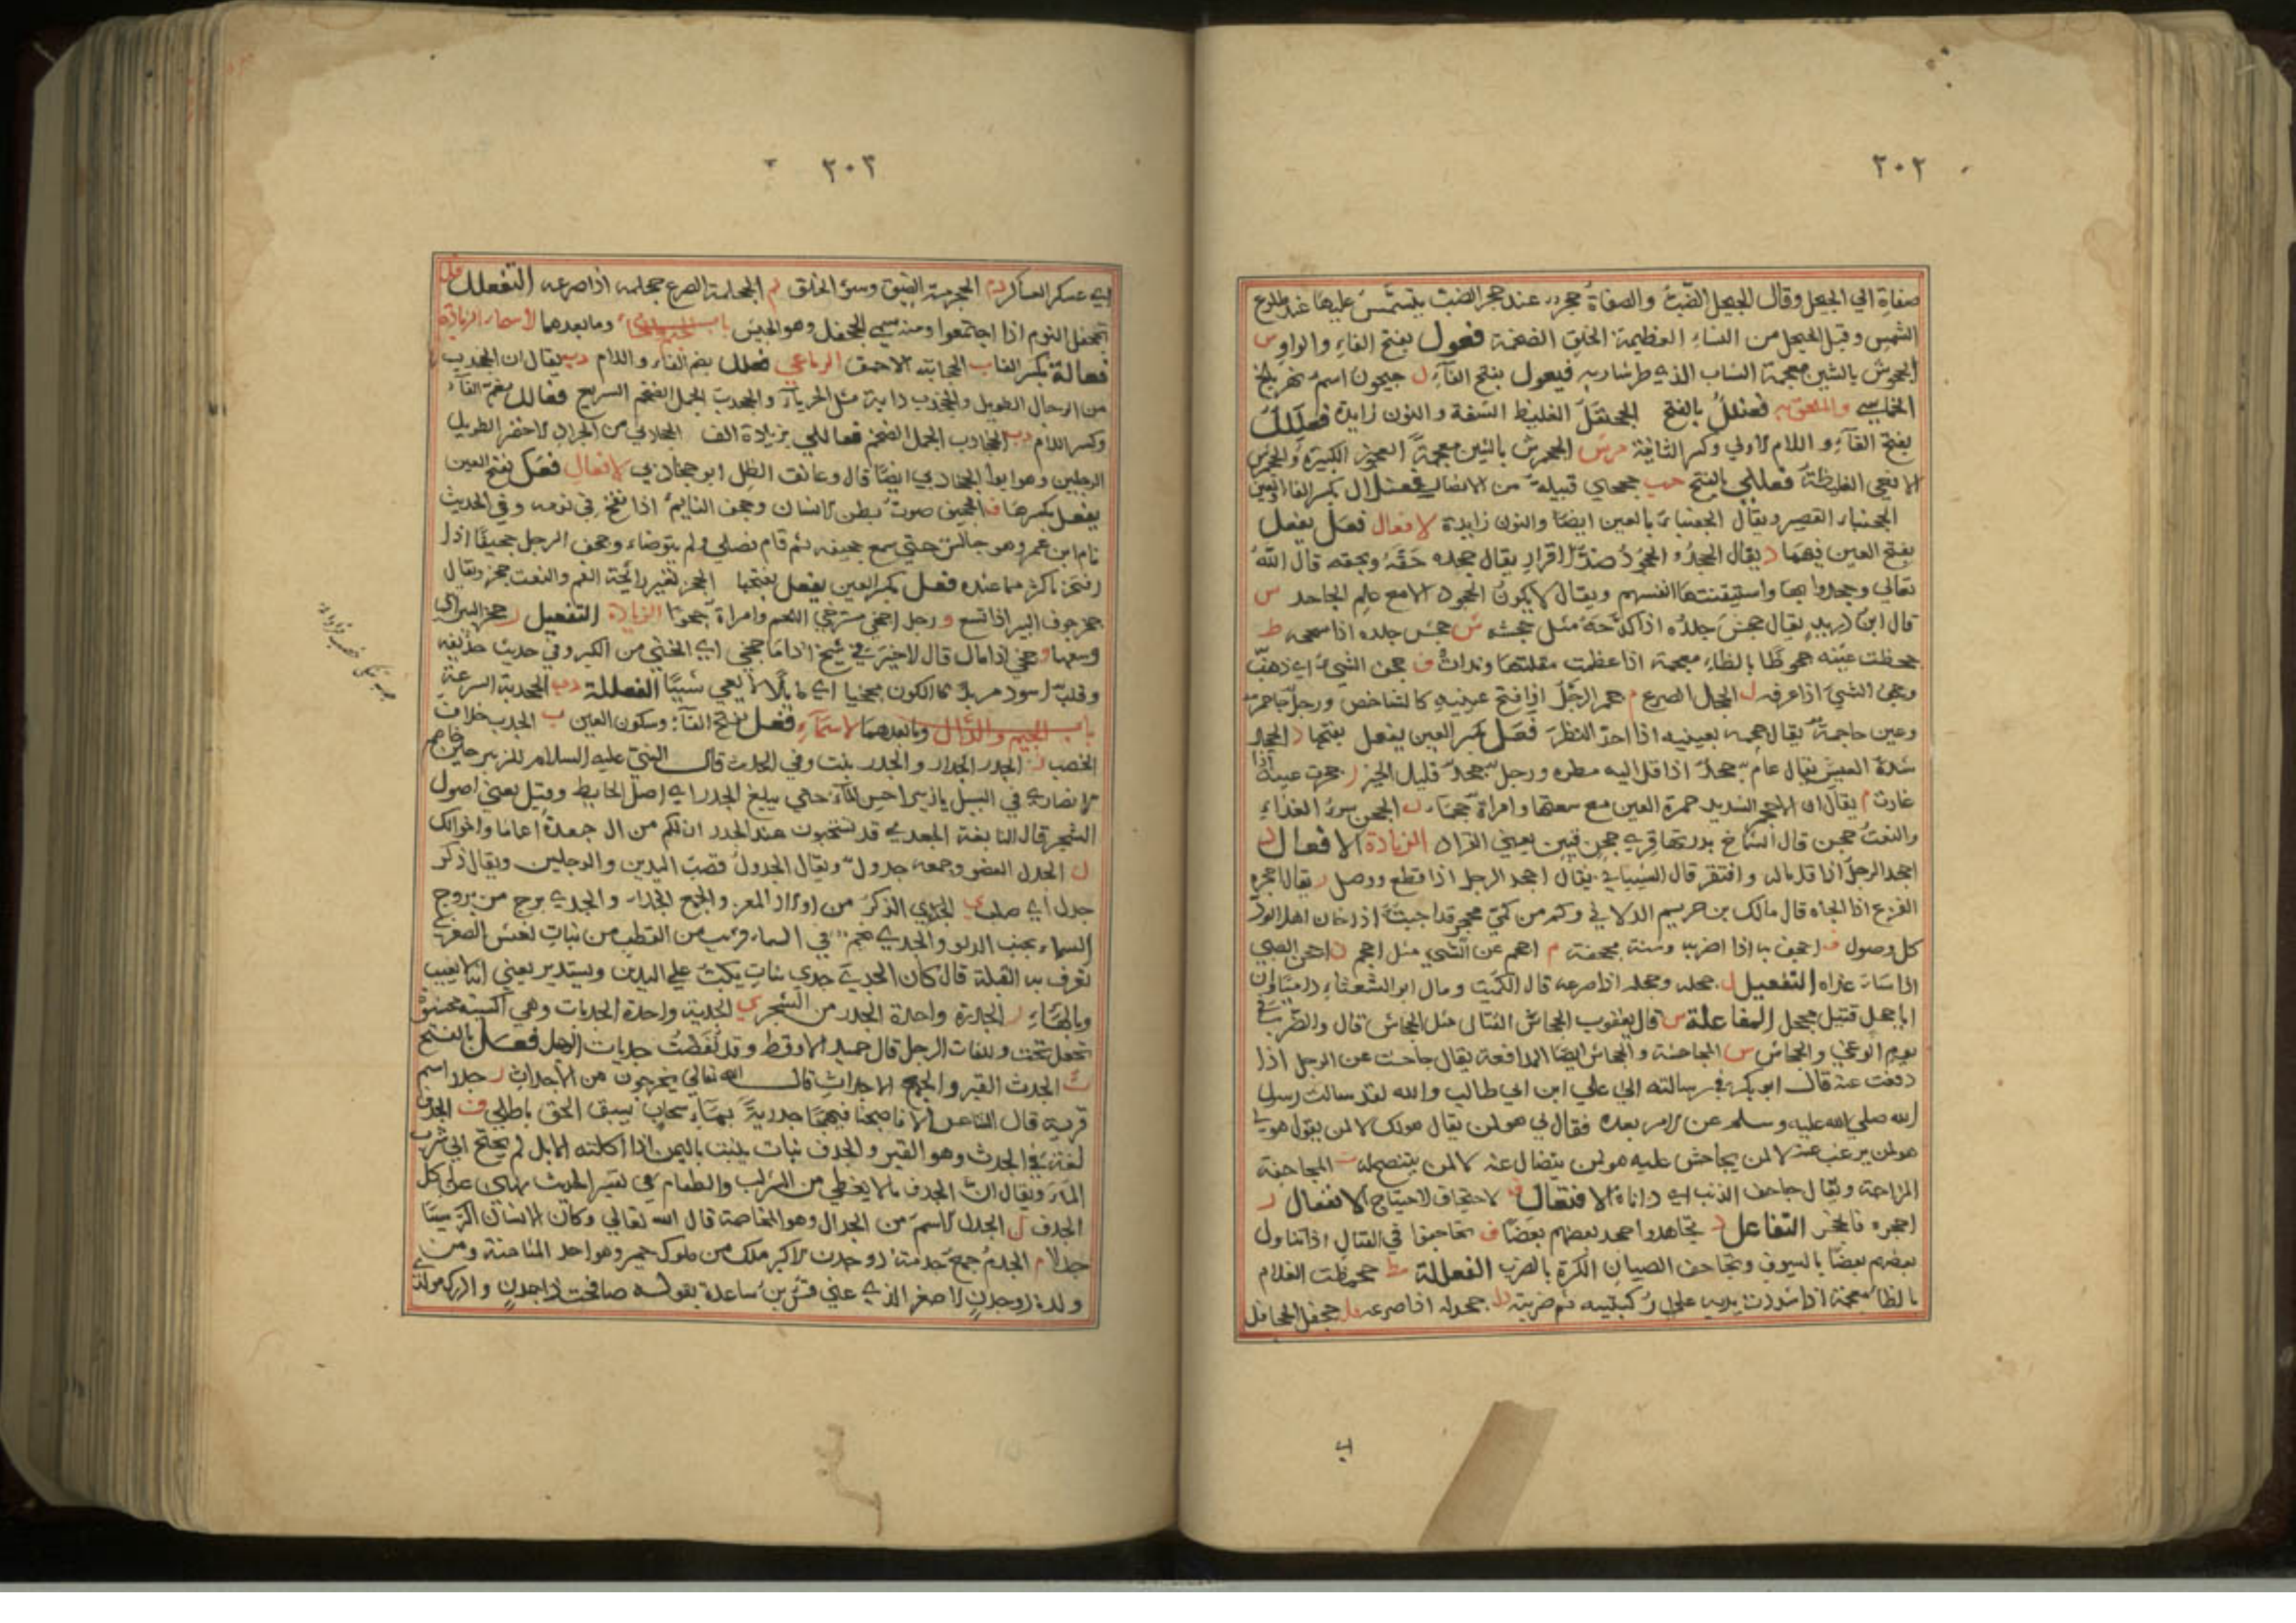 ٢٠٢
صفاةِ الي الجيحل وقال الجيحل الضبّ والصفاة حجر عند جحر الضبّ يتشمّس عليها عند طلوع
الشمس وقيل الجيحل من النساء العظيمة الخلق الضخمة فعول بفتح الفاء والواو س
الجحوش بالشين معجمة الشاب الذي طر شاربه فيعول بفتح الفاء ل جيحون اسم نهر بلخ
الخماسي والملحق به فعنلل بالفتح الجحنفل الغليظ الشفة والنون زايدة فعللل
بفتح الفاء واللام الاولي وكسر الثانية مرش الجحمرش بالشين معجمة العجوز الكبيرة والجحمرش
الافعي الغليظة فعللي بالفتح جحجبي قبيلة من الانصار فعنلال بكسر الفاء والعين
الجحنبار القصير ويقال الجعنبار بالعين ايضا والنون زايدة الافعال فعل يفعل
بفتح العين فيهما د يقال الجحد والجحود ضد الاقرار يقال جحده حقه وبحقه قال الله
تعالي وجحدوا بها واستيقنتها انفسهم ويقال لا يكون الجحود الا مع علم الجاحد س
قال ابن دريد يقال جحس جلده اذا كدحه مثل جحشه ش جحش جلده اذا سحجه ظ
جحظت عينه جحوظا بالظاء معجمة اذا عظمت مقلتها وندرت ف جحف الشيء اي ذهب به
وجحف الشي اذا غرفه ل الجحل الصرع م جحم الرجل اذا فتح عينيه كالشاخص ورجل جاحم
وعين جاحمة يقال جحمه بعينيه اذا احد النظر فعل بكسر العين يفعل بفتحها د الجحد
شدة العيش يقال عام جحد اذا قل اليه مطره ورجل جحد قليل الخير ر جحرت عينه اذا
غارت م يقال ان الاجحم الشديد حمرة العين مع سعتها وامراة جحماء ن الجحن سوء الغذاء
والنعت جحن قال الشماخ بدرتها قري جحن قتين يعني القراد الزيادة الافعال د
اجحد الرجل اذا قل ماله وافتقر قال الشيباني يقال اجحد الرجل اذا قطع ووصل ر يقال اجحره
الفزع اذا الجاه قال مالك بن حريم الدلاني وكم من كمي مجحر قد اجبته اذا خان اهل الود
كل وصول ف اجحف به اذا اضر به وسنة مجحفة م اجحم عن الشي مثل احجم ن اجحن الصبي
اذا ساء غذاه التفعيل ل جحله وجحله اذا صرعه قال الكميت ومال ابو الشعثاء
اباجحل قتيل مجحل المفاعلة س قال يعقوب الجحاس القتال مثل الجحاش قال والضرب في
يوم الوغي والجحاس ش المجاحشة والجحاش ايضا المدافعة يقال جاحشت عن الرجل اذا
دفعت عنه قال ابو بكر في رسالته الي علي ابن ابي طالب والله لقد سالت رسول
الله صلي الله عليه وسلم عن الامر بعده فقال لي هو لمن يقال هو لك لا لمن يقول هو لي
هو لمن يرغب عنه لا لمن يجاحش عليه هو لمن يتضال عنه لا لمن يتنصله ف المجاحفة
المزاحمة ويقال جاحف الذنب اي داناه الافتعال ف الاجتحاف الاجتياح الانفعال ر
اجحره فانجحر التفاعل د تجاحدوا جحد بعضهم بعضا ف تجاحفوا في القتال اذا تناول
بعضهم بعضا بالسيوف وتجاحف الصبيان الكرة بالضرب الفعللة مظ جحمظت الغلام
بالظاء معجمة اذا شددت يديه علي ركبتيه ثم ضربته دل جحدله اذا صرعه فل جحفل الجحافل
اي
٢٠٣
اي عسكر العساكر رم الجحرمة الضيق وسوء الخلق لم الجحلمة الصرع جحلمه اذا صرعه التفعلل فل
تجحفل القوم اذا اجتمعوا ومنه سمي الجحفل وهو الجيش باب الجيم والخاء وما بعدهما الاسماء الزيادة
فعالة بكسر الفاء ب الجخابة الاحمق الرباعي فعلل بضم الفاء واللام دب يقال ان الجخدب
من الرجال الطويل والجخدب دابة مثل الحرباء والجخدب الجمل الضخم السريع فعالل بضم الفاء
وكسر اللام دب الجخادب الجمل الضخم فعاللي بزيادة الف الجخادبي من الجراد الاخضر الطويل
الرجلين وهو ابو الجخادبي ايضا قال وعانق الظل ابو جخادبي الافعال فعل بفتح العين
يفعل بكسرها ف الجخيف صوت بطن الانسان وجخف النايم اذا نفخ في نومه وفي الحديث
نام ابن عمر وهو جالس حتي سمع جخيفه ثم قام فصلي ولم يتوضاء وجخف الرجل جخيفا اذا
افتخر باكثر مما عنده فعل بكسر العين يفعل بفتحها الجخر تغير رائحة الفم والنعت جخر ويقال
جخر جوف البير اذا اتسع و رجل اجخي مسترخي اللحم وامراة جخوا الزيادة التفعيل ر جخر البير اي
وسعها و جخي اذا مال قال لا خير في شيخ اذا ما جخي اي انحني من الكبر وفي حديث حذيفة
وقلب اسود مربد كالكوز مجخيا اي مايلا لا يعي شييا الفعللة دب الجخدبة السرعة
باب الجيم والدال وما بعدهما الاسماء فعل بفتح الفاء وسكون العين ب الجدب خلاف
الخصب ر الجدر الجدار والجدر نبت وفي الحديث قال النبي عليه السلام للزبير حين خاصم
الانصاري في السيل يا زبير احبس الماء حتي يبلغ الجدر اي اصل الحايط وقيل يعني اصول
الشجر قال النابغة الجعدي قد تستحبون عند الجدر ان لكم من ال جعدة اعماما واخوالا
ل الجدل العضو وجمعه جدول ويقال الجدول قصب اليدين والرجلين ويقال ذكر
جدل اي صلب ي الجدي الذكر من اولاد المعز والجمع الجداء والجدي برج من بروج
السماء بجنب الدلو والجدي نجم في السماء قريب من القطب من نبات نعش الصغري
تعرف به القبلة قال كان الجدي جدي نبات نعش يكب علي اليدين ويستدير يعني انه لا يغيب
وبالهاء ر الجدرة واحدة الجدر من الشجر ي الجدية واحدة الجديات وهي اكسية محشوة
تجعل تحت دفات الرحل قال حميد الارقط وقد نفضت جديات الرحل فعل بالفتح
ث الجدث القبر والجمع الاجداث قال الله تعالي يخرجون من الاجداث ر جدر اسم
قرية قال الشاعر الا فاصبحنا فيهجا جدرية بماء سحاب يسبق الحق باطلي ف الجدف
لغة في الجدث وهو القبر والجدف نبات ينبت باليمن اذا اكلته الابل لم يحتج الي شرب
الماء ويقال ان الجدف ما لا يغطي من الشراب والطعام
الجدف ل الجدل الاسم من الجدال وهو المخاصمة قال الله تعالي وكان الانسان اكثر شيئا
جدلا م الجدم جمع جدمة ذو جدن الاكبر ملك من ملوك حمير وهو احد المثامنة ومن
ولده ذو جدن الاصغر الذي عني قس بن ساعدة بقوله صافحت ذا جدن وادرك مولد